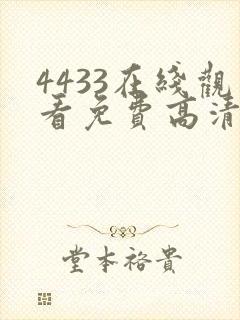 4433在綫觀
看免費高清
堂本裕貴